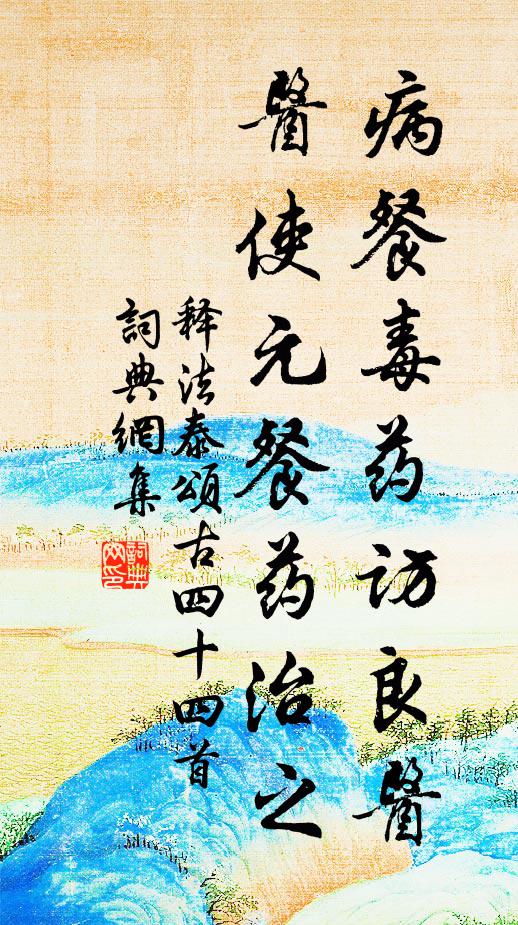 病餐毒药访良醫
醫使元餐药治之
释法泰頌古四十四首
詞典網集
詞典網印